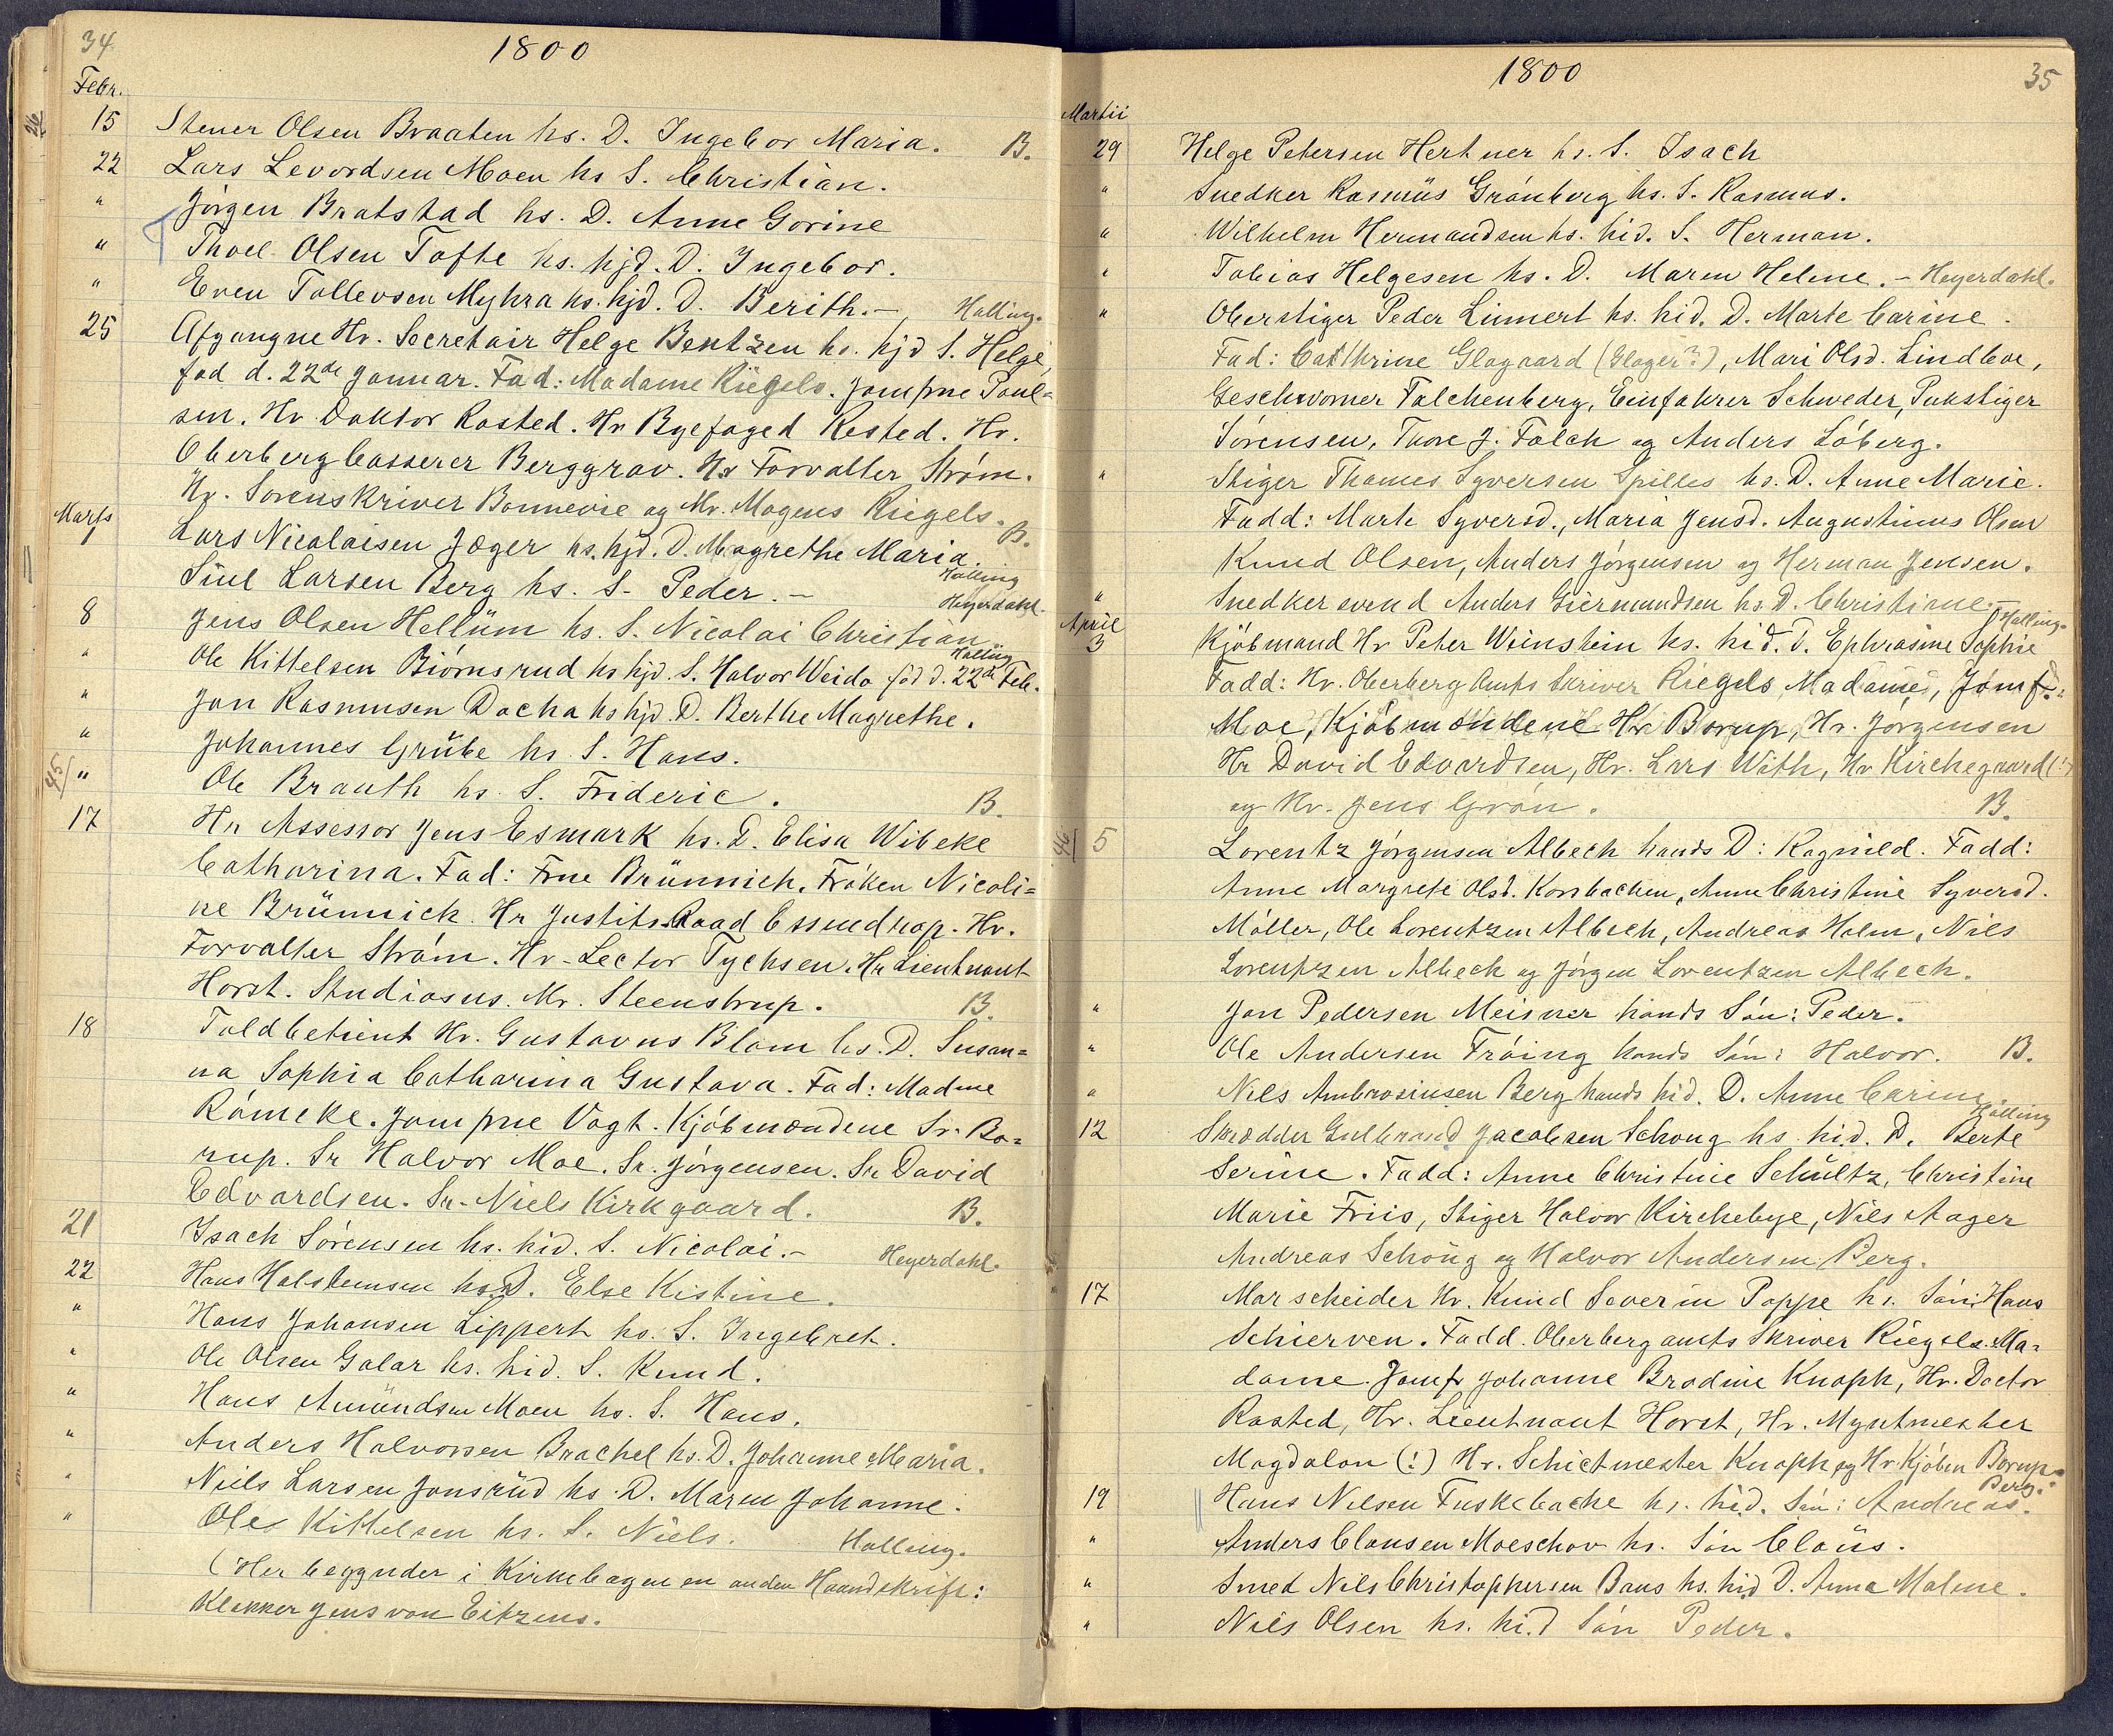 34.
1800
Febr.
15 Stener Olsen Braaten hs. D. Ingebor Maria. B.
22 Lars Levordsen Moen hs S. Christian.
" Jörgen Bratstad hs. D. Anne Gorine
" Thoel Olsen Tofte hs. hjd. D. Ingebor.
" Even Tollevsen Myhra hs. hjd. D. Berith. – Halling.
25 Afgangne Hr. Secretair Helge Bentzen hs. hjd S. Helge,
fød d. 22de Januar. Fad: Madame Riegels. Jomfrue Poul=
sen. Hr Doktor Rosted. Hr Byefoged Rosted. Hr.
Oberbergcasserer Berggrav. Hr Forvalter Ström.
Hr. Sorenskriver Bonnevie og Mr. Mogens Riegels. B.
Marts
Lars Nicolaisen Jæger hs. hjd. D. Magrethe Maria. Halling
Siul Larsen Berg hs. S. Peder. – Heyerdahl.
8 Jens Olsen Hellüm hs. S. Nicolai Christian. Halling
" Ole Kittelsen Biörnsrud hs hjd. S. Halvor Weido fød d. 22de Feb.
" Jon Rasmusen Docha hs hjd. D. Berthe Magrethe.
" Johannes Grübe hs. S. Hans.
45/ " Ole Brauth hs. S. Frideric. B.
17 Hr Assessor Jens Esmark hs. D. Elisa Wibeke
Catharina. Fad: Frue Brünnich. Fröken Nicoli=
ne Brünnich. Hr Justits Raad Essendrop. Hr.
Forvalter Ström. Hr. Lector Tychsen. Hr Lieutnant
Horst. Studiosus. Mr. Steenstrup. B.
18 Toldbetient Hr. Gustavus Blom hs. D. Susan=
na Sophia Catharina Gustava. Fad: Madme
Römcke. Jomfrue Vogt. Kjöbmændene Sr. Bo=
rup. Sr Halvor Moe. Sr. Jörgensen. Sr David
Edvardsen. Sr. Niels Kirkgaard. B.
21 Isach Sörensen hs. hid. S. Nicolai. – Heyerdahl.
22 Hans Halstensen hs. D. Else Kistine.
" Hans Johansen Lippert hs. S. Ingebret.
" Ole Olsen Golar hs. hid. S. Knud.
" Hans Amündsen Moen hs. S. Hans.
" Anders Halvorsen Brachel hs. D. Johanne Maria.
" Niels Larsen Jonsrüd hs. D. Maren Johanne.
" Ole Kittelsen hs. S. Niels. Halling.
(Her begynder i Kirkebogen en anden Haandskrift:
Klokker Jens von Eitzens.
1800
35
Martii
29 Helge Petersen Hertner hs. S. Isach
" Snedker Rasmüs Grönberg hs. S. Rasmus.
" Wilhelm Hermandsen hs. hid. S. Herman.
" Tobias Helgesen hs. D. Maren Helene. – Heyerdahl.
" Oberstiger Peder Linnert hs. hid. D. Marte Carine.
Fad: Cathrine Glogaard (Gloger?), Mari Olsd. Lindboe,
Geschworner Falchenberg, Einfahrer Schweder, Pukstiger
Sörensen, Thore J. Falch og Anders Löberg.
" Stiger Thomes Syversen Spilles hs. D. Anne Marie.
Fadd: Marte Syversd., Maria Jensd. Augustinus Olsen
Knud Olsen, Anders Jörgensen og Herman Jensen.
" Snedkersvend Anders Giermundsen hs. D. Christiane. – Halling.
April
3 Kjöbmand Hr Peter Weinstein hs. hid. D. Ephrasine Sophie
Fadd: Hr. Oberberg Amts Skriver Riegels Madame, Jomf.:
Moe, Kjöbmændene Hr Borup, Hr. Jorgensen
Hr David Edvardsen, Hr. Lars With, Hr Kirchegaard (!)
og Hr. Jens Grön. B.
46/ 5 Lorentz Jörgensen Albech hands D: Ragnild. Fadd:
Anne Margrete Olsd. Korsbachen, Anne Christine Syversd.
Möller, Ole Lorentzen Albech, Andreas Holm, Niels
Lorentzen Albeck og Jörgen Lorentzen Albech.
" Jon Pedersen Meisner hands Sön: Peder.
" Ole Andersen Fröing hands Sön: Halvor. B.
" Nils Ambrosiusen Berg hands hid. D. Anne Carine. Halling
12 Skrædder Gulbrand Jacobsen Schoug hs. hid. D. Berte
Serine. Fadd: Anne Christine Schultz, Christine
Marie Friis, Stiger Halvor Kirchebye, Nils Aager
Andreas Schoug og Halvor Andersen Berg.
17 Marscheider Hr. Knud Severin Poppe hs. Sön: Hans
Schierven. Fadd. Oberbergamts Skriver Riegels Ma=
dame. Jomfr Johanne Brodine Knoph, Hr. Doctor
Rosted, Hr. Lieutnant Horst, Hr. Myntmester
Magdalon (!) Hr. Schictmester Knoph og Hr. Kjöbm Borup.
19 Hans Nilsen Fuskebache hs. hid. Sön: Andreas. Berg.
" Anders Clausen Moeschov hs. Sön Claüs.
" Smed Nils Christophersen Baus hs. hid D. Anna Malene.
" Niels Olsen hs. hid Sön Peder.